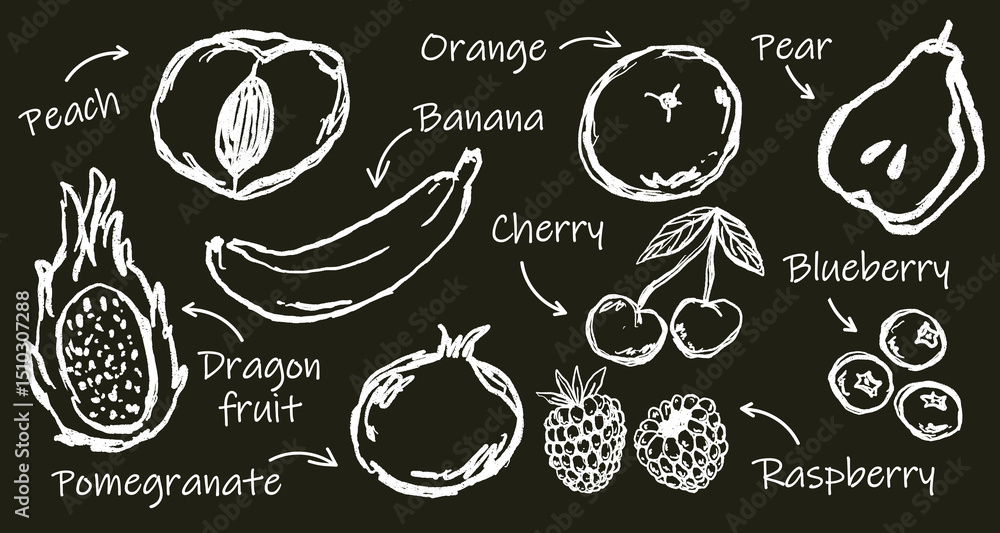 Peach
Orange
Pear
Banana
Cherry
Blueberry
Dragon
fruit
Pomegranate
Raspberry
Adobe Stock
1510307288